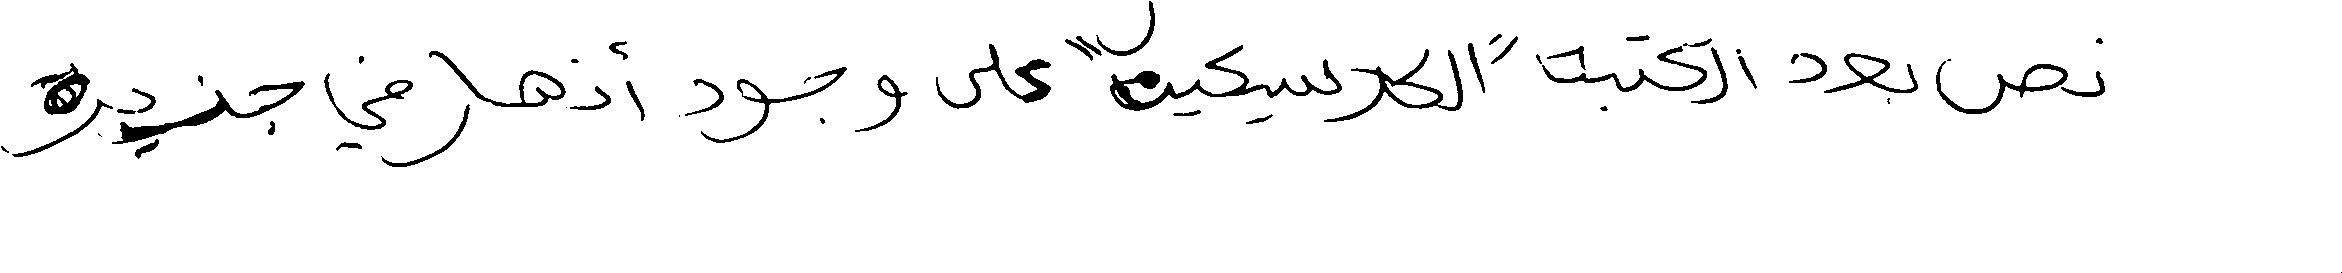 نص بعد الكتبة "الكلاسيكين" على وجود أنهار في جزيرة